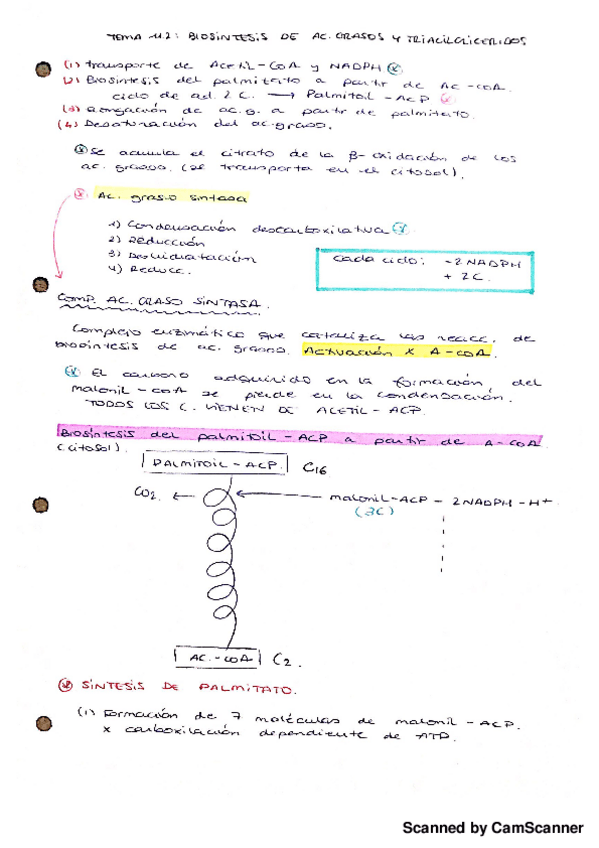 TEMA 11.2: BIOSÍNTESIS DE AC. GRASOS Y TRIACILGLICERIDOS
(1) transporte de Acetil-CoA y NADPH
(2) Biosíntesis del palmitato a partir de Ac-CoA.
ciclo de ad. 2C. → Palmitoil-ACP
(3) elongación de ac.g. a partir de palmitato.
(4) Desaturación del ac.graso.
Se acumula el citrato de la β-oxidación de los
ac. grasos. (se transporta en el citosol).
Ac. graso sintasa
1) Condensación descarboxilativa
2) REDUCCIÓN
3) Deshidratación
4) Reducc.
cada ciclo: -2NADPH
+ 2C.
COMP. AC. GRASO SINTASA.
Complejo enzimático que cataliza las reacc. de
biosíntesis de ac. grasos. Activación x A-CoA.
El carbono adquirido en la formación del
malonil-CoA se pierde en la condensación.
TODOS LOS C. VIENEN DE ACETIL-ACP.
Biosíntesis del palmitoil-ACP a partir de A-CoA
(citosol).
PALMITOIL-ACP. C16
CO2 ← malonil-ACP - 2NADPH-H+
(3C)
AC.-CoA C2.
SÍNTESIS DE PALMITATO.
(1) Formación de 7 moléculas de malonil-ACP.
x carboxilación dependiente de ATP.
Scanned by CamScanner